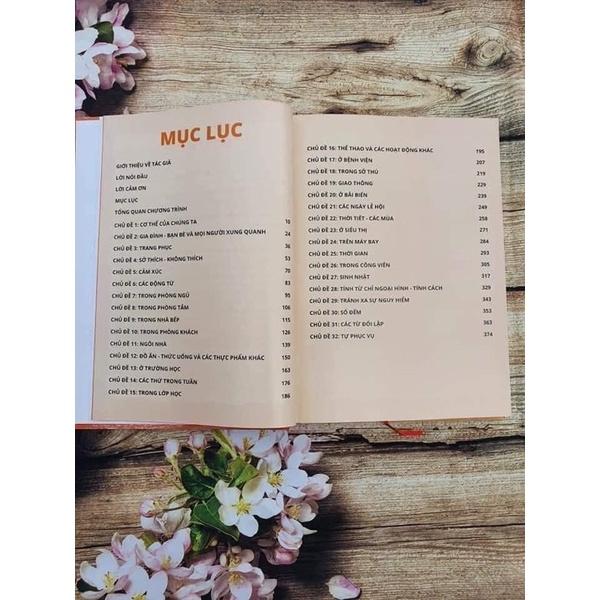 MỤC LỤC
GIỚI THIỆU VỀ TÁC GIẢ
LỜI NÓI ĐẦU
LỜI CẢM ƠN
MỤC LỤC
TỔNG QUAN CHƯƠNG TRÌNH
CHỦ ĐỀ 1: CƠ THỂ CỦA CHÚNG TA 10
CHỦ ĐỀ 2: GIA ĐÌNH - BẠN BÈ VÀ MỌI NGƯỜI XUNG QUANH 24
CHỦ ĐỀ 3: TRANG PHỤC 36
CHỦ ĐỀ 4: SỞ THÍCH - KHÔNG THÍCH 53
CHỦ ĐỀ 5: CẢM XÚC 70
CHỦ ĐỀ 6: CÁC ĐỘNG TỪ 83
CHỦ ĐỀ 7: TRONG PHÒNG NGỦ 95
CHỦ ĐỀ 8: TRONG PHÒNG TẮM 106
CHỦ ĐỀ 9: TRONG NHÀ BẾP 115
CHỦ ĐỀ 10: TRONG PHÒNG KHÁCH 126
CHỦ ĐỀ 11: NGÔI NHÀ 139
CHỦ ĐỀ 12: ĐỒ ĂN - THỨC UỐNG VÀ CÁC THỰC PHẨM KHÁC 150
CHỦ ĐỀ 13: Ở TRƯỜNG HỌC 163
CHỦ ĐỀ 14: CÁC THỨ TRONG TUẦN 176
CHỦ ĐỀ 15: TRONG LỚP HỌC 186
CHỦ ĐỀ 16: THỂ THAO VÀ CÁC HOẠT ĐỘNG KHÁC 195
CHỦ ĐỀ 17: Ở BỆNH VIỆN 207
CHỦ ĐỀ 18: TRONG SỞ THÚ 219
CHỦ ĐỀ 19: GIAO THÔNG 229
CHỦ ĐỀ 20: Ở BÃI BIỂN 239
CHỦ ĐỀ 21: CÁC NGÀY LỄ HỘI 249
CHỦ ĐỀ 22: THỜI TIẾT - CÁC MÙA 258
CHỦ ĐỀ 23: Ở SIÊU THỊ 271
CHỦ ĐỀ 24: TRÊN MÁY BAY 284
CHỦ ĐỀ 25: THỜI GIAN 293
CHỦ ĐỀ 26: TRONG CÔNG VIÊN 305
CHỦ ĐỀ 27: SINH NHẬT 317
CHỦ ĐỀ 28: TÍNH TỪ CHỈ NGOẠI HÌNH - TÍNH CÁCH 329
CHỦ ĐỀ 29: TRÁNH XA SỰ NGUY HIỂM 343
CHỦ ĐỀ 30: SỐ ĐẾM 353
CHỦ ĐỀ 31: CÁC TỪ ĐỐI LẬP 363
CHỦ ĐỀ 32: TỰ PHỤC VỤ 374